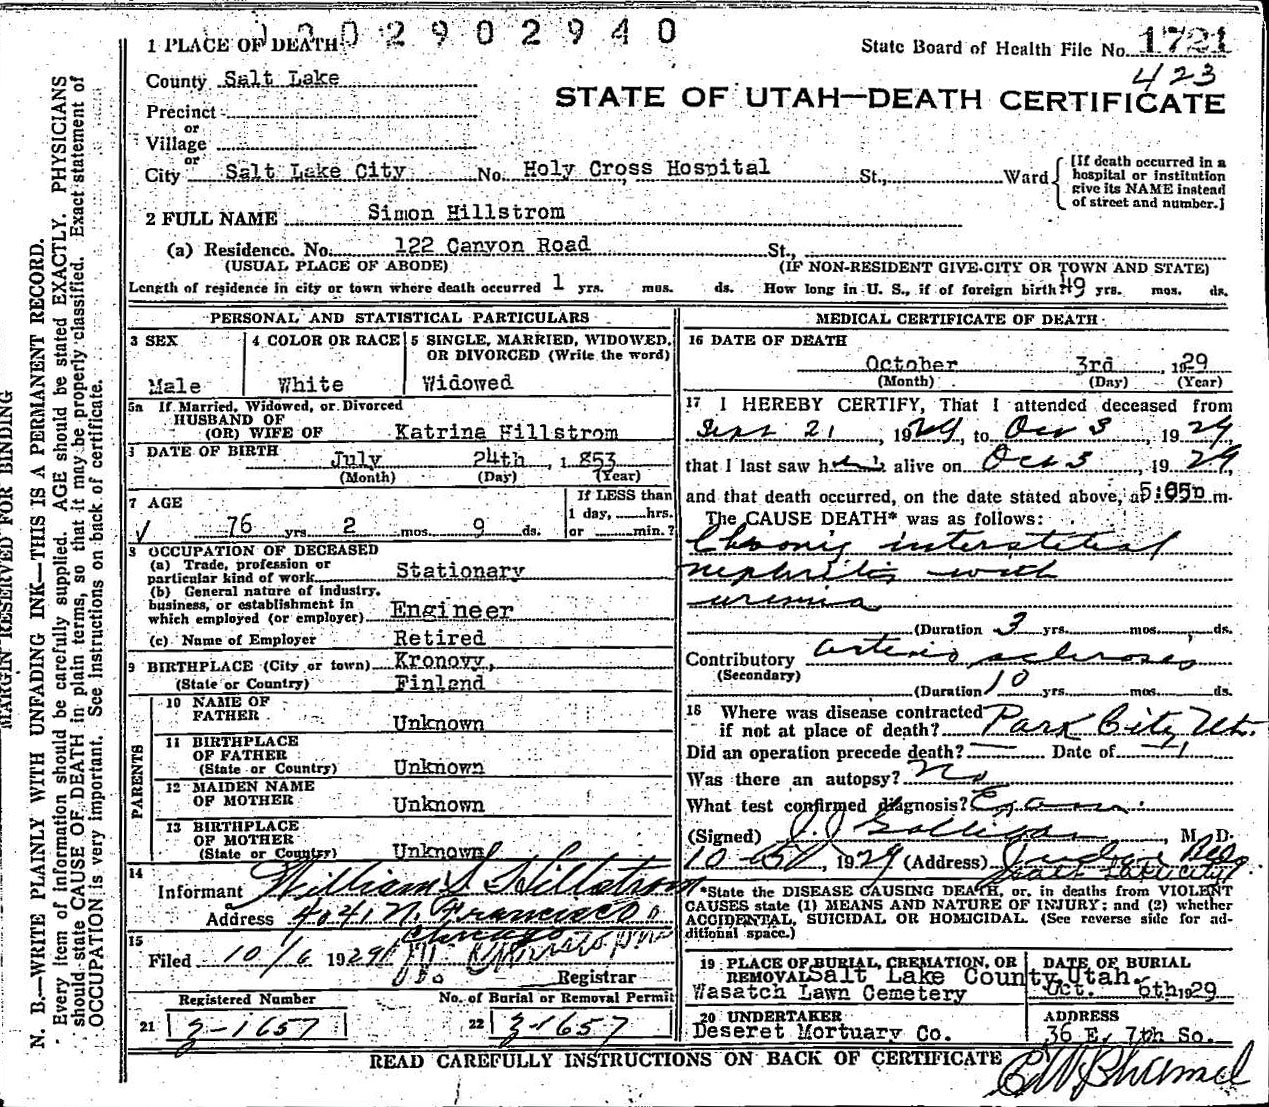 1302902940
1 PLACE OF DEATH
State Board of Health File No. 1721
423
County Salt Lake
STATE OF UTAH—DEATH CERTIFICATE
Precinct
or
Village
or
City Salt Lake City No. Holy Cross Hospital St., Ward
[If death occurred in a hospital or institution give its NAME instead of street and number.]
2 FULL NAME Simon Hillstrom
(a) Residence. No. 122 Canyon Road St.,
(USUAL PLACE OF ABODE) (IF NON-RESIDENT GIVE CITY OR TOWN AND STATE)
Length of residence in city or town where death occurred 1 yrs. mos. ds. How long in U. S., if of foreign birth 49 yrs. mos. ds.
PERSONAL AND STATISTICAL PARTICULARS
3 SEX
Male
4 COLOR OR RACE
White
5 SINGLE, MARRIED, WIDOWED, OR DIVORCED (Write the word)
Widowed
5a If Married, Widowed, or Divorced
HUSBAND OF
(OR) WIFE OF Katrina Hillstrom
DATE OF BIRTH July 24th, 1853
(Month) (Day) (Year)
7 AGE
76 yrs. 2 mos. 9 ds.
If LESS than
1 day, hrs.
or min.?
8 OCCUPATION OF DECEASED
(a) Trade, profession or
particular kind of work Stationary
(b) General nature of industry,
business, or establishment in
which employed (or employer) Engineer
(c) Name of Employer Retired
9 BIRTHPLACE (City or town) Kronovy,
(State or Country) Finland
PARENTS
10 NAME OF
FATHER Unknown
11 BIRTHPLACE
OF FATHER
(State or Country) Unknown
12 MAIDEN NAME
OF MOTHER Unknown
13 BIRTHPLACE
OF MOTHER
(State or Country) Unknown
14
Informant William S Hillstrom
Address 4041 N. Francisco
Chicago
15
Filed 10/6 1929
Registrar
Registered Number
21 Z-1657
No. of Burial or Removal Permit
22 Z-1657
MEDICAL CERTIFICATE OF DEATH
16 DATE OF DEATH
October 3rd, 1929
(Month) (Day) (Year)
17 I HEREBY CERTIFY, That I attended deceased from
Sept 21, 1929, to Oct 3, 1929
that I last saw him alive on Oct 3, 1929,
and that death occurred, on the date stated above, at 5:05p m.
The CAUSE DEATH* was as follows:
Chronic interstitial
nephritis with
uremia
(Duration 3 yrs. mos. ds.
Contributory arterio sclerosis
(Secondary)
(Duration 10 yrs. mos. ds.
18 Where was disease contracted
if not at place of death? Park City Ut.
Did an operation precede death? — Date of —
Was there an autopsy? No
What test confirmed diagnosis? Exam.
(Signed) J. J. Galligan, M. D.
1929 (Address) Judge Bldg.
Salt Lake City
*State the DISEASE CAUSING DEATH, or, in deaths from VIOLENT
CAUSES state (1) MEANS AND NATURE OF INJURY; and (2) whether
ACCIDENTAL, SUICIDAL OR HOMICIDAL. (See reverse side for ad-
ditional space.)
19 PLACE OF BURIAL, CREMATION, OR
REMOVAL Salt Lake County, Utah.
Wasatch Lawn Cemetery
DATE OF BURIAL
Oct. 6th 1929
20 UNDERTAKER
Deseret Mortuary Co.
ADDRESS
36 E. 7th So.
READ CAREFULLY INSTRUCTIONS ON BACK OF CERTIFICATE
MARGIN RESERVED FOR BINDING
N. B.—WRITE PLAINLY WITH UNFADING INK—THIS IS A PERMANENT RECORD.
Every item of information should be carefully supplied. AGE should be stated EXACTLY. PHYSICIANS
should state CAUSE OF DEATH in plain terms, so that it may be properly classified. Exact statement of
OCCUPATION is very important. See instructions on back of certificate.